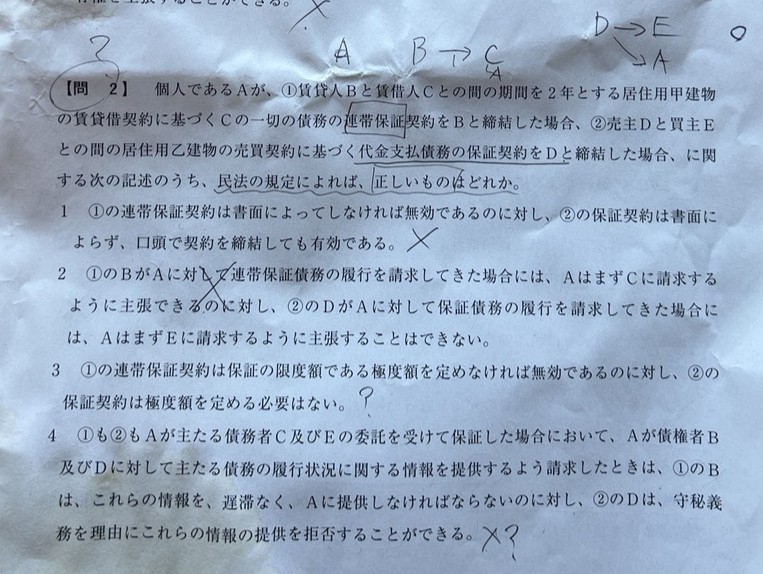 有権を主張することができる。 ×
?
A B → C
A
D → E
→ A
○
【問 2】 個人であるAが、①賃貸人Bと賃借人Cとの間の期間を2年とする居住用甲建物
の賃貸借契約に基づくCの一切の債務の連帯保証契約をBと締結した場合、②売主Dと買主E
との間の居住用乙建物の売買契約に基づく代金支払債務の保証契約をDと締結した場合、に関
する次の記述のうち、民法の規定によれば、正しいものはどれか。
1 ①の連帯保証契約は書面によってしなければ無効であるのに対し、②の保証契約は書面に
よらず、口頭で契約を締結しても有効である。 ×
2 ①のBがAに対して連帯保証債務の履行を請求してきた場合には、AはまずCに請求する
ように主張できるのに対し、②のDがAに対して保証債務の履行を請求してきた場合に
は、AはまずEに請求するように主張することはできない。
3 ①の連帯保証契約は保証の限度額である極度額を定めなければ無効であるのに対し、②の
保証契約は極度額を定める必要はない。 ?
4 ①も②もAが主たる債務者C及びEの委託を受けて保証した場合において、Aが債権者B
及びDに対して主たる債務の履行状況に関する情報を提供するよう請求したときは、①のB
は、これらの情報を、遅滞なく、Aに提供しなければならないのに対し、②のDは、守秘義
務を理由にこれらの情報の提供を拒否することができる。 ×?